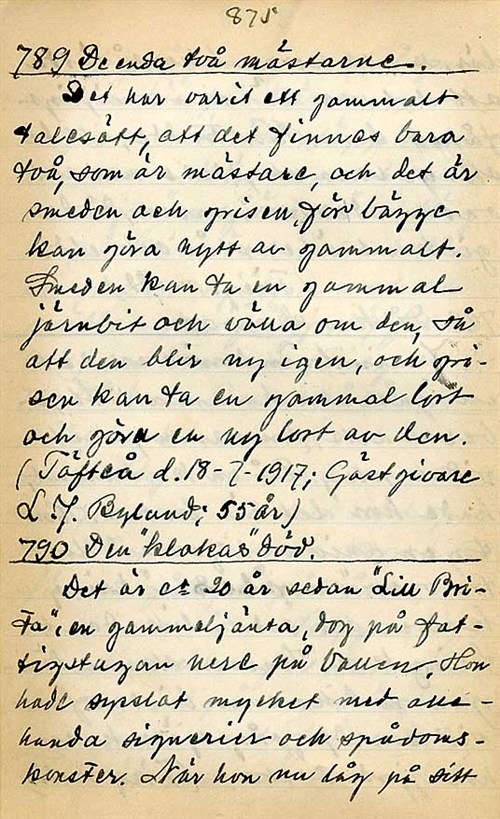 875
789 De enda två mästarne.
Det har varit ett gammalt
talesätt, att det finnes bara
två, som är mästare, och det är
smeden och grisen, för bägge
kan göra nytt av gammalt.
Smeden kan ta en gammal
järnbit och välla om den, så
att den blir ny igen, och gri-
sen kan ta en gammal lort
och göra en ny lort av den.
(Täfteå d. 18-7-1917; Gästgivare
L. J. Bylund; 55 år)
790 Den "klokas" död.
Det är c:a 20 år sedan "Lill Bri-
ta", en gammeljänta, dog på fat-
tigstugan nere på vallen. Hon
hade sysslat mycket med alle-
handa signerier och spådoms-
konster. När hon nu låg på sitt